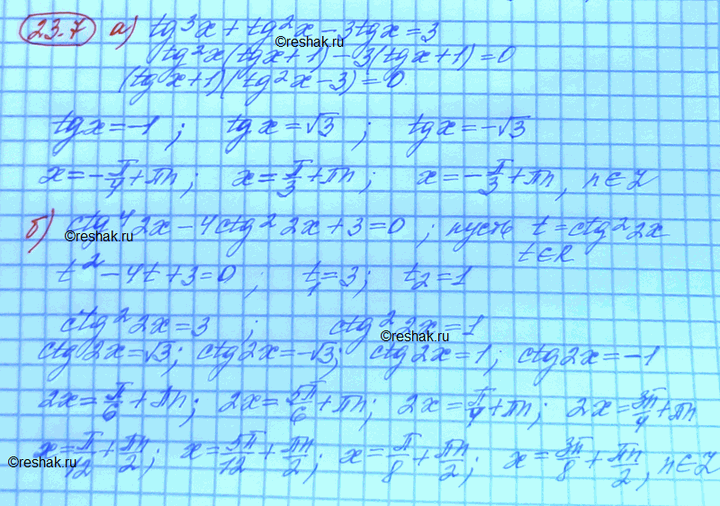 23.7 а) tg³x + tg²x - 3tgx = 3
©reshak.ru
tg²x(tgx+1) - 3(tgx+1) = 0
(tgx+1)(tg²x-3) = 0
tgx = -1 ; tgx = √3 ; tgx = -√3
x = -π/4 + πn ; x = π/3 + πn ; x = -π/3 + πn, n∈Z
б) ctg⁴2x - 4ctg²2x + 3 = 0 ; пусть t = ctg²2x
©reshak.ru
t∈R
t² - 4t + 3 = 0 ; t₁ = 3 ; t₂ = 1
ctg²2x = 3 ; ctg²2x = 1
©reshak.ru
ctg2x = √3 ; ctg2x = -√3 ; ctg2x = 1 ; ctg2x = -1
2x = π/6 + πn ; 2x = 5π/6 + πn ; 2x = π/4 + πn ; 2x = 3π/4 + πn
x = π/12 + πn/2 ; x = 5π/12 + πn/2 ; x = π/8 + πn/2 ; x = 3π/8 + πn/2, n∈Z
©reshak.ru
©reshak.ru